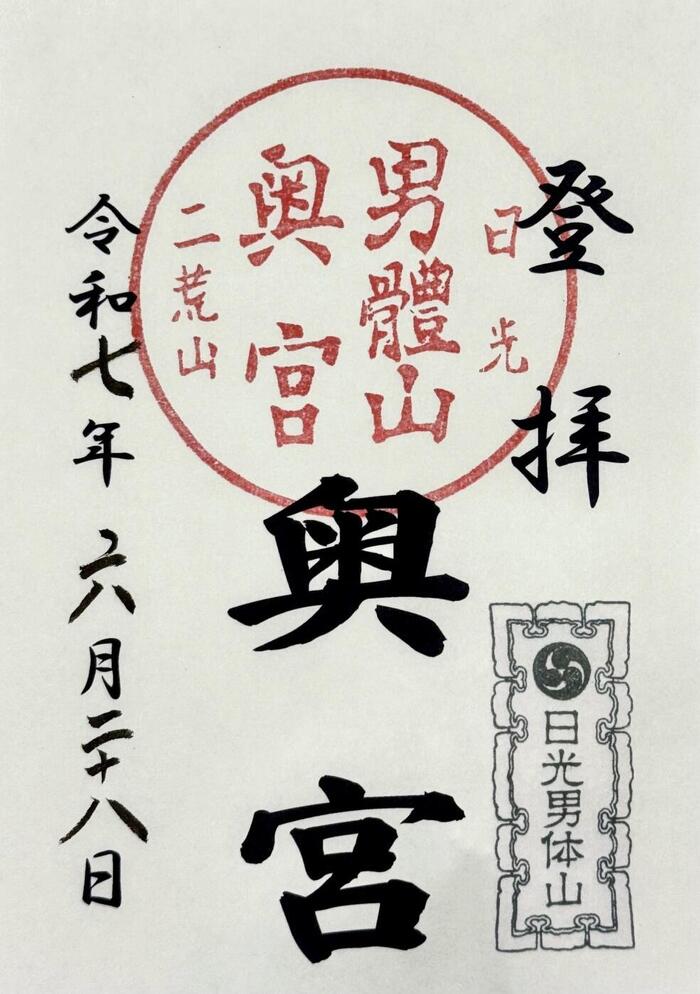 登拝
日光
男體山
奥宮
二荒山
奥宮
日光男体山
令和七年六月二十八日